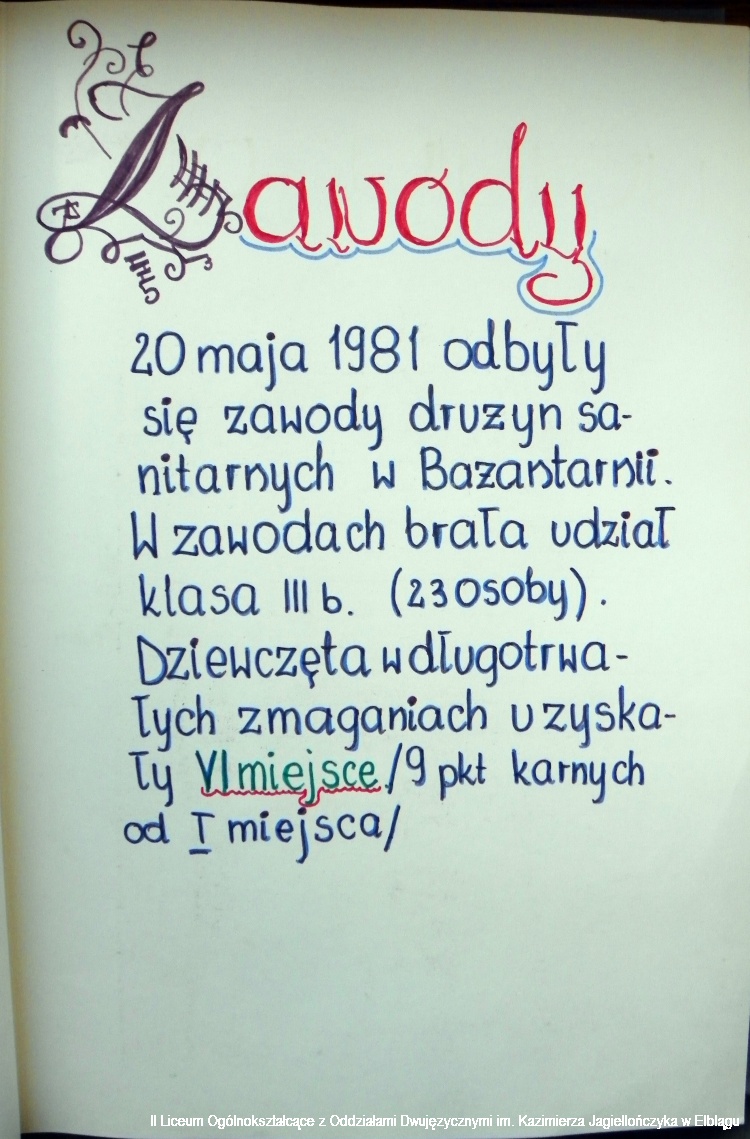 Zawody
20 maja 1981 odbyły
się zawody drużyn sa-
nitarnych w Bażantarnii.
W zawodach brała udział
klasa III b. (23 osoby).
Dziewczęta w długotrwa-
łych zmaganiach uzyska-
ły VI miejsce /9 pkt karnych
od I miejsca/
II Liceum Ogólnokształcące z Oddziałami Dwujęzycznymi im. Kazimierza Jagiellończyka w Elblągu